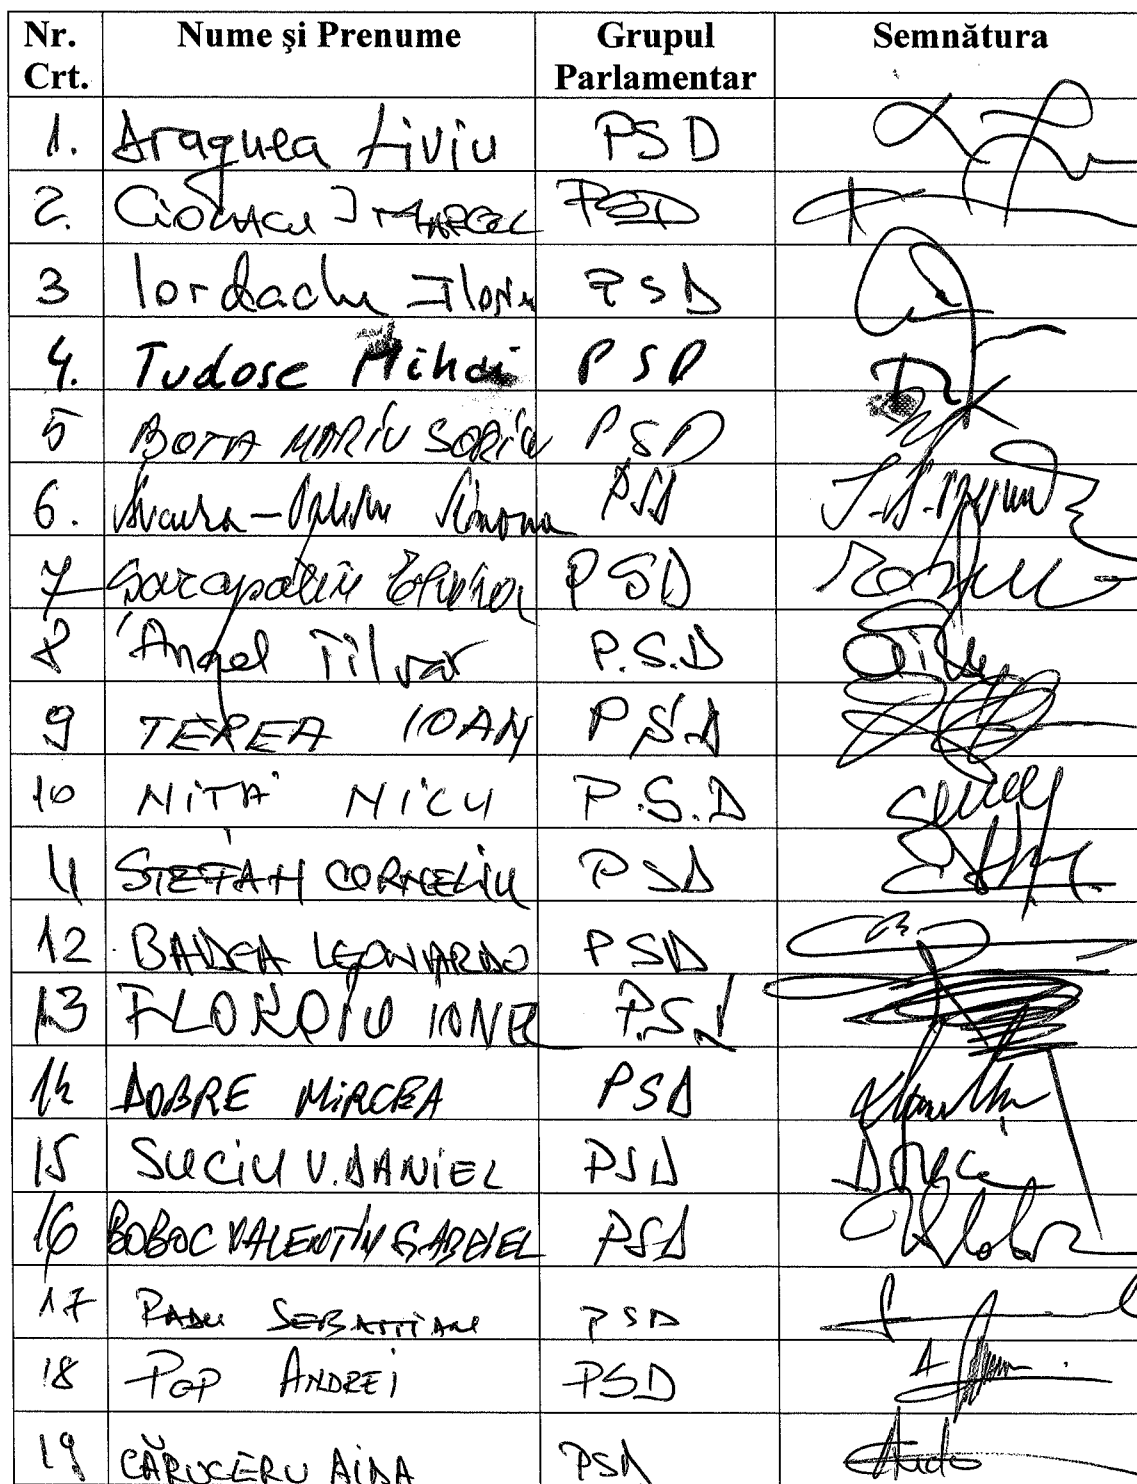 Nr. Crt. Nume şi Prenume Grupul Parlamentar Semnătura
1. Dragnea Liviu PSD
2. Ciolacu I MARCEL PSD
3 Iordache Florin PSD
4. Tudose Mihai PSD
5 BOTA MARIU SORIN PSD
6. Simona PSD
7 PSD
8 Angel Tîlvăr P.S.D
9 TEREA IOAN PSD
10 NIŢĂ NICU P.S.D
11 ŞTEFAN CORNELIU PSD
12 BADEA LEONARDO PSD
13 FLOROIU IONEL P.S.D
14 DOBRE MIRCEA PSD
15 SUCIU V. DANIEL PSD
16 BOBOC VALENTIN GABRIEL PSD
17 RADU SEBASTIAN PSD
18 POP ANDREI PSD
19 CĂRUCERU AIDA PSD